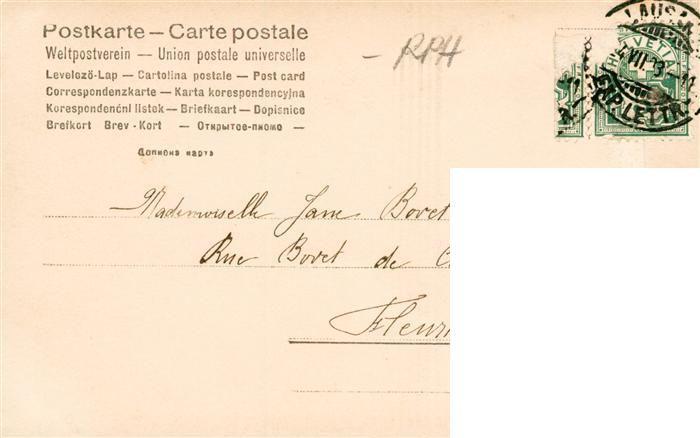 Postkarte – Carte postale
Weltpostverein – Union postale universelle
Levelező-Lap – Cartolina postale – Post card
Correspondenzkarte – Karta korespondencyjna
Korespondenční listek – Briefkaart – Dopisnice
Brefkort Brev-Kort – Открытое-писмо –
Дописна карта
– RPH
HELVETIA
LAUS
VII.
EXP. LETTR.
Mademoiselle Jane Bovet
Rue Bovet de
Fleuri